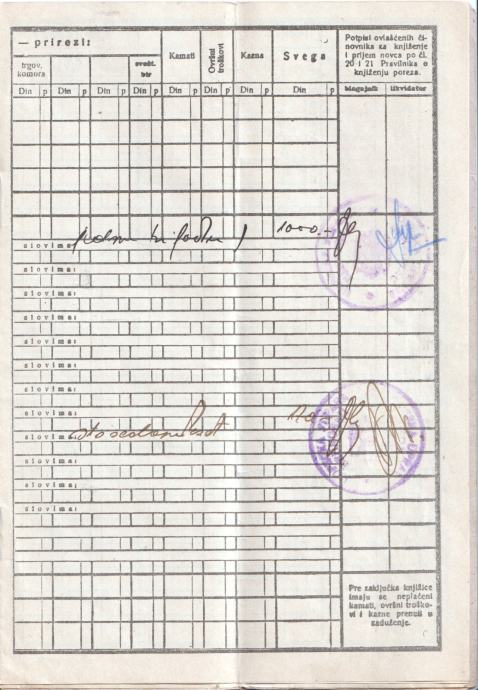 — prirezi:
trgov.
komora
svešt.
bir
Kamati
Ovršni
troškovi
Kazna
Svega
Potpisi ovlašćenih či-
novnika za knjiženje
i prijem novca po čl.
20 i 21 Pravilnika o
knjiženju poreza.
Din p Din p Din p Din p Din p Din p Din p Din p
blagajnik likvidator
1000.-
slovima:
slovima:
slovima:
slovima:
slovima:
slovima:
slovima:
slovima:
sto sedamdeset
slovima:
slovima:
slovima:
slovima:
Pre zaključka knjižice
imaju se neplaćeni
kamati, ovršni troško-
vi i kazne preneti u
zaduženje.